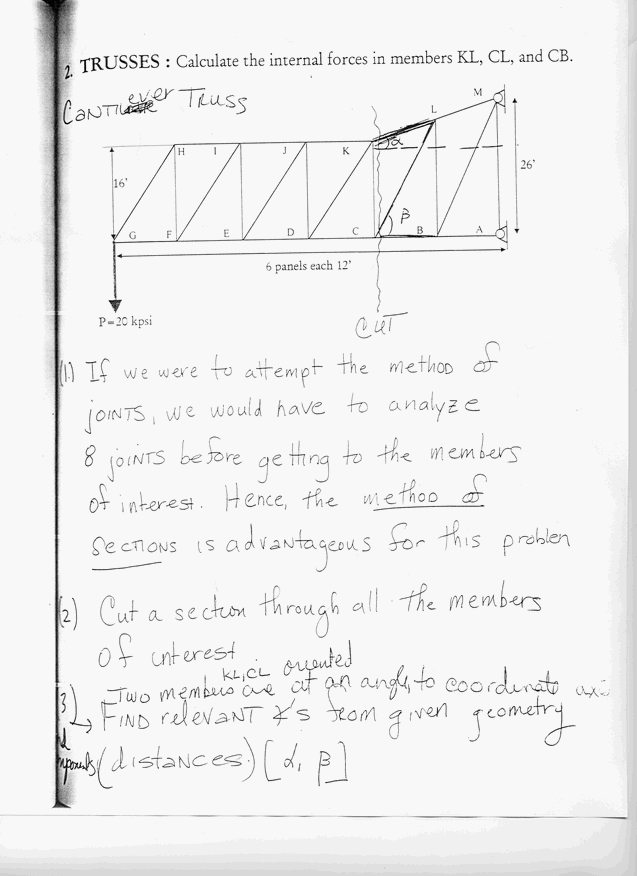 2. TRUSSES : Calculate the internal forces in members KL, CL, and CB.
CANTILever TRUSS
M
L
H I J K α
16'
26'
β
G F E D C B A
6 panels each 12'
P=20 kpsi
CUT
(1.) If we were to attempt the method of
joints, we would have to analyze
8 joints before getting to the members
of interest. Hence, the method of
sections is advantageous for this problem
(2) Cut a section through all the members
of interest
KL, CL oriented
3) Two members are at an angle to coordinate axis
→ FIND relevant ∠'s from given geometry
(distances) [α, β]